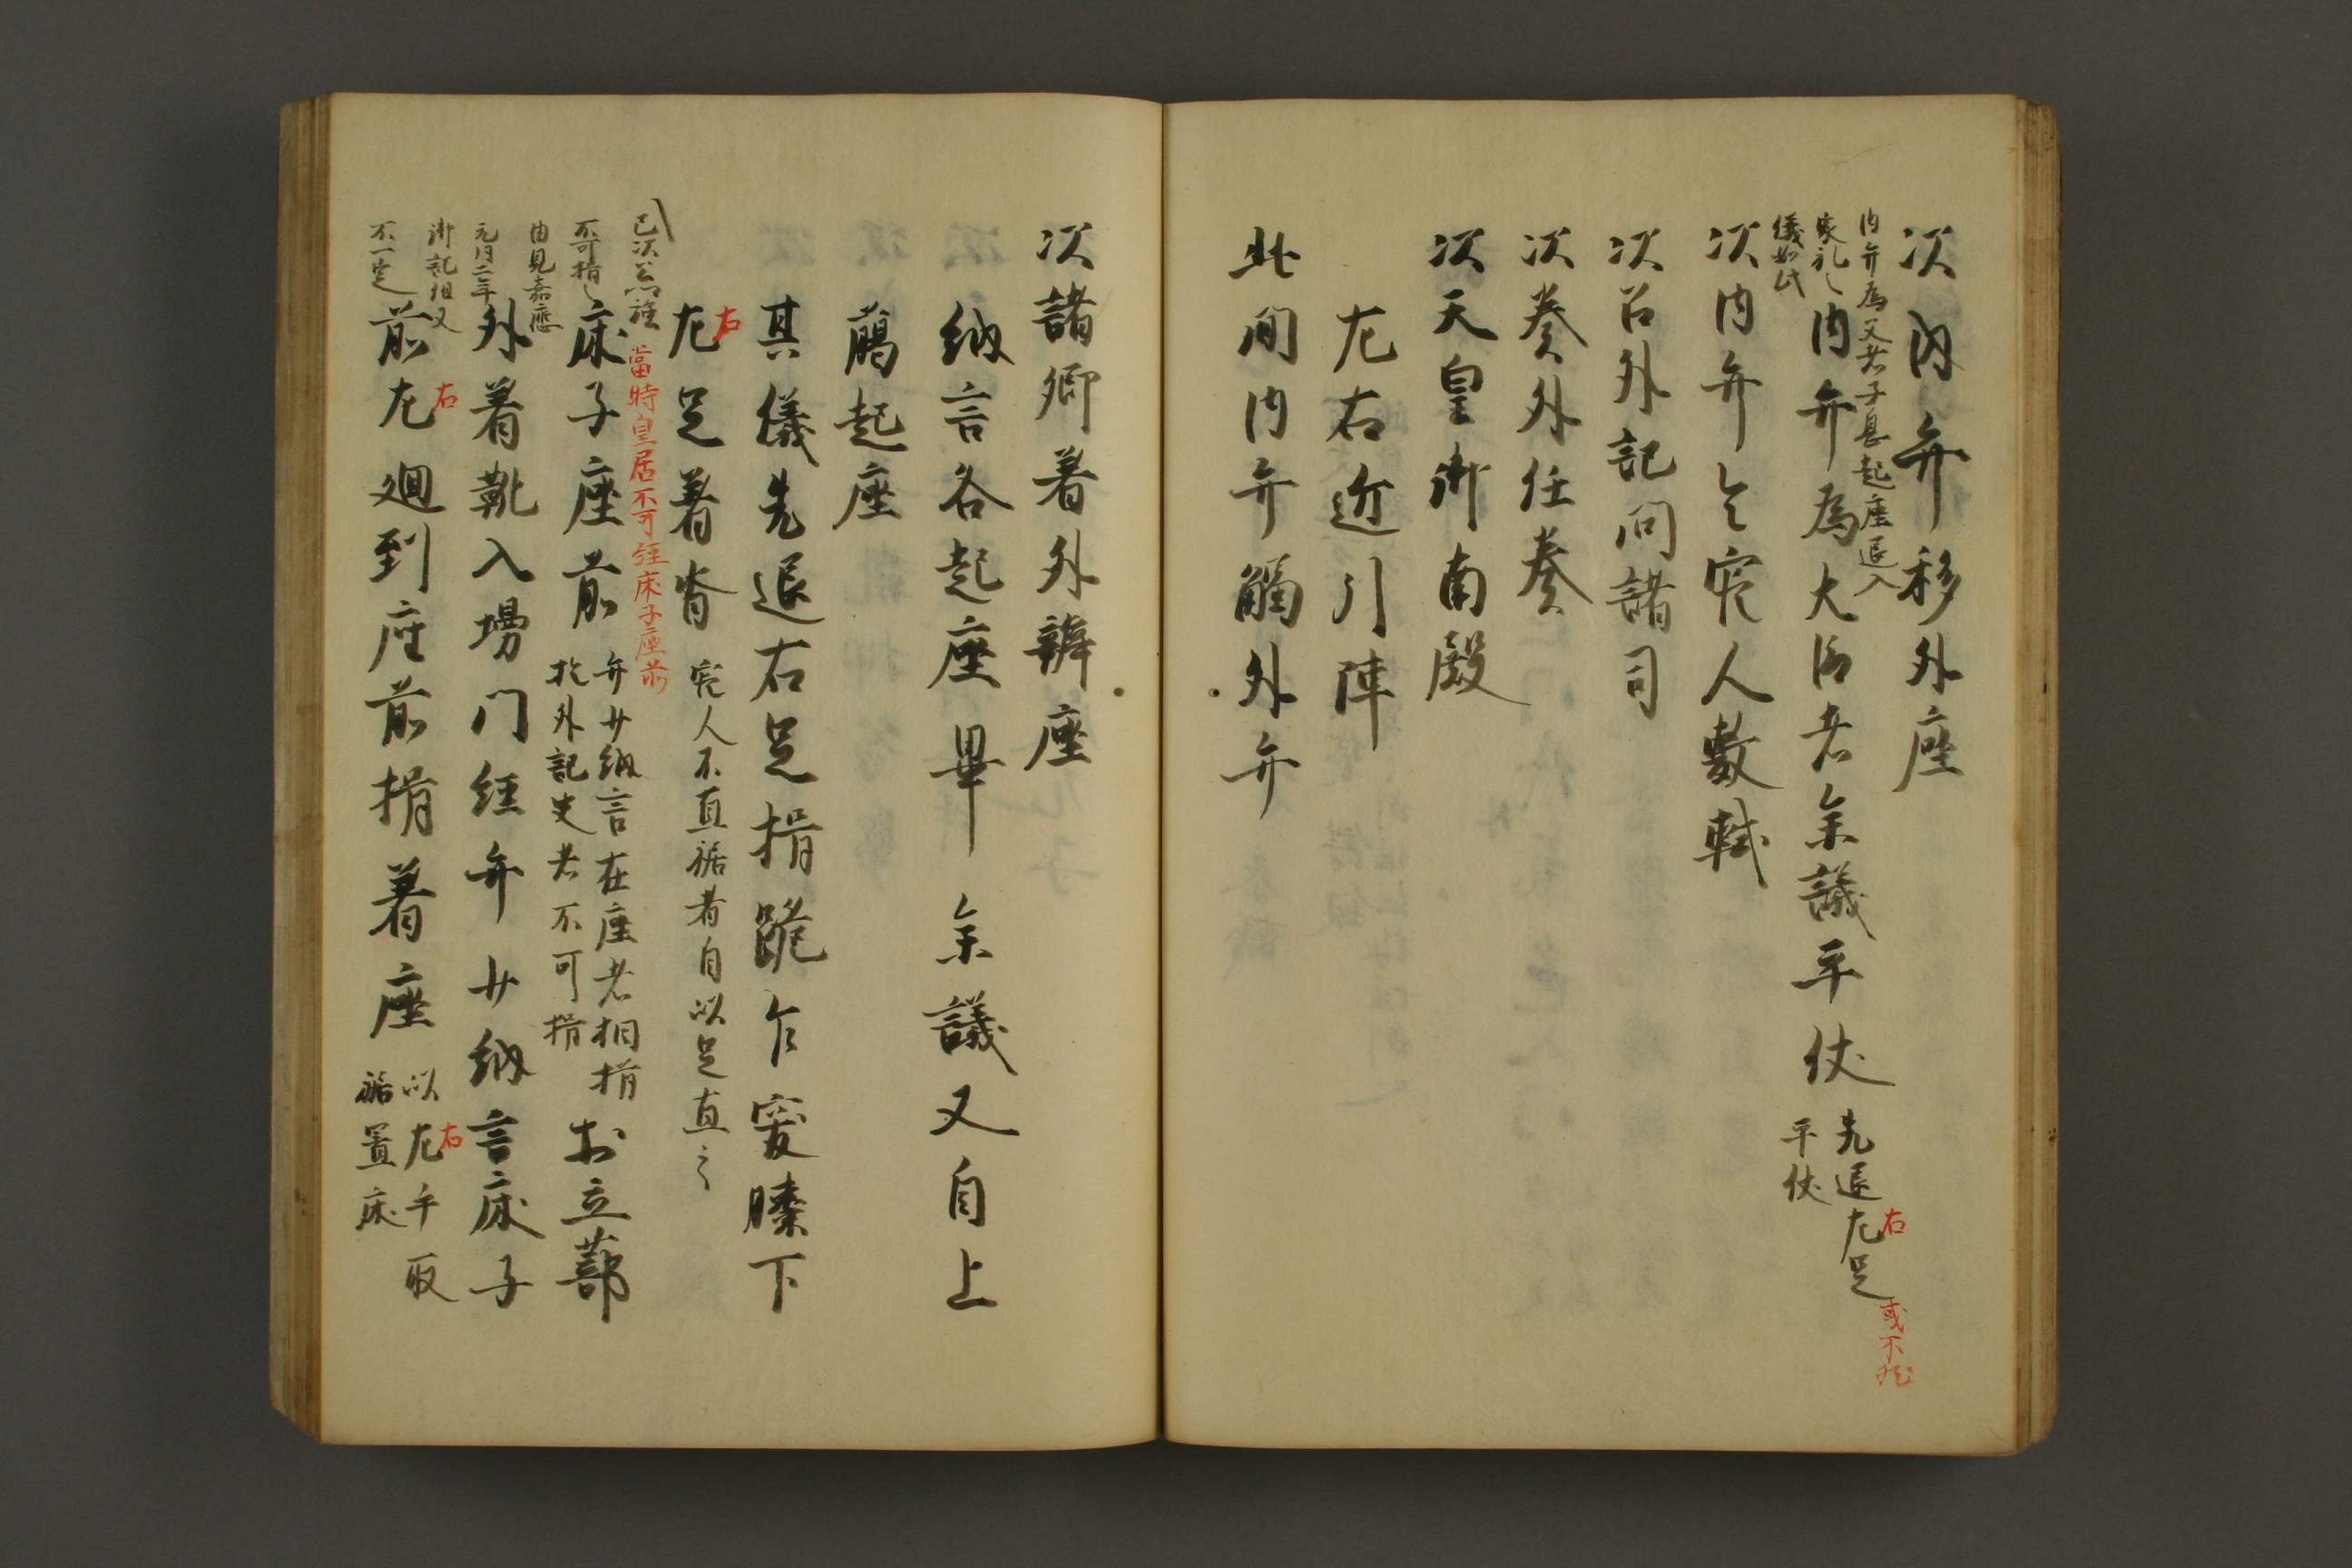 次内弁移外座
内弁為父者子息起座退入
家礼
儀如此
内弁為大臣者参議平伏
先退左足
右
或不然
平伏
次内弁令官人敷軾
次召外記問諸司
次奏外任奏
次天皇御南殿
左右近引陣
此間内弁觸外弁
次諸卿着外辨座
納言各起座畢 参議又自上
臈起座
其儀先退右足揖跪乍突膝下
左足着沓
右
官人不直裾者自以足直之
當時皇居不可経床子座前
床子座前
弁少納言在座者相揖
於外記史者不可揖
於立蔀
不可揖
由見嘉應
元同二年
御記但又
不一定
外着靴入墁门経弁少納言床子
前左廻到座前揖着座
右
以左手取
右
裾置床